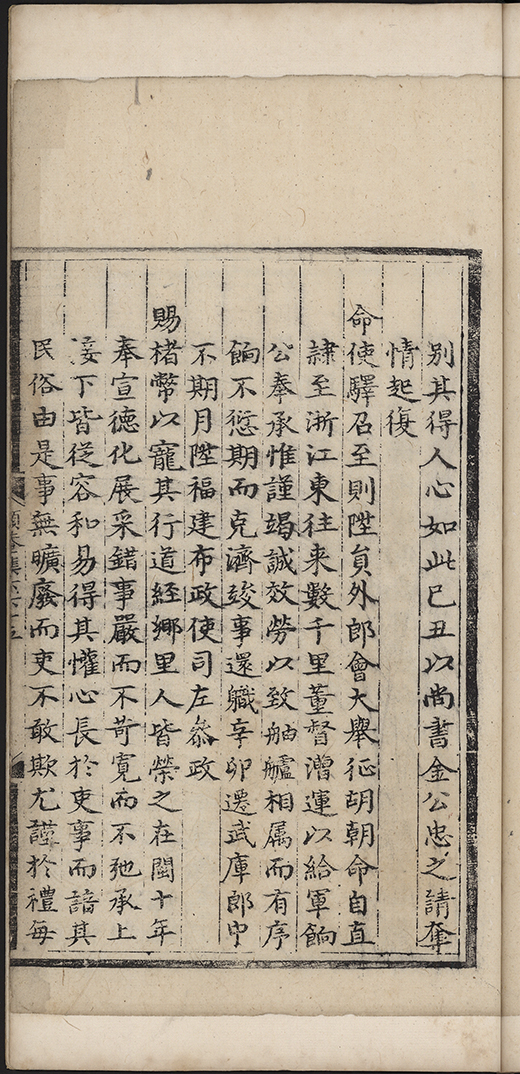 別其得人心如此己丑以尚書金公忠之請奪
情起復
命使驛召至則陞貟外郎會大舉征胡朝命自直
隷至浙江東往来數千里董督漕運以給軍餉
公奉承惟謹竭誠效勞以致舳艫相属而有序
餉不愆期而克濟竣事還軄辛卯遷武庫郎中
不期月陞福建布政使司左叅政
賜楮幣以寵其行道経鄉里人皆榮之在閩十年
奉宣德化展采錯事嚴而不苛寛而不弛承上
接下皆従容和易得其懽心長於吏事而諳其
民俗由是事無曠廢而吏不敢欺尤謹於禮每